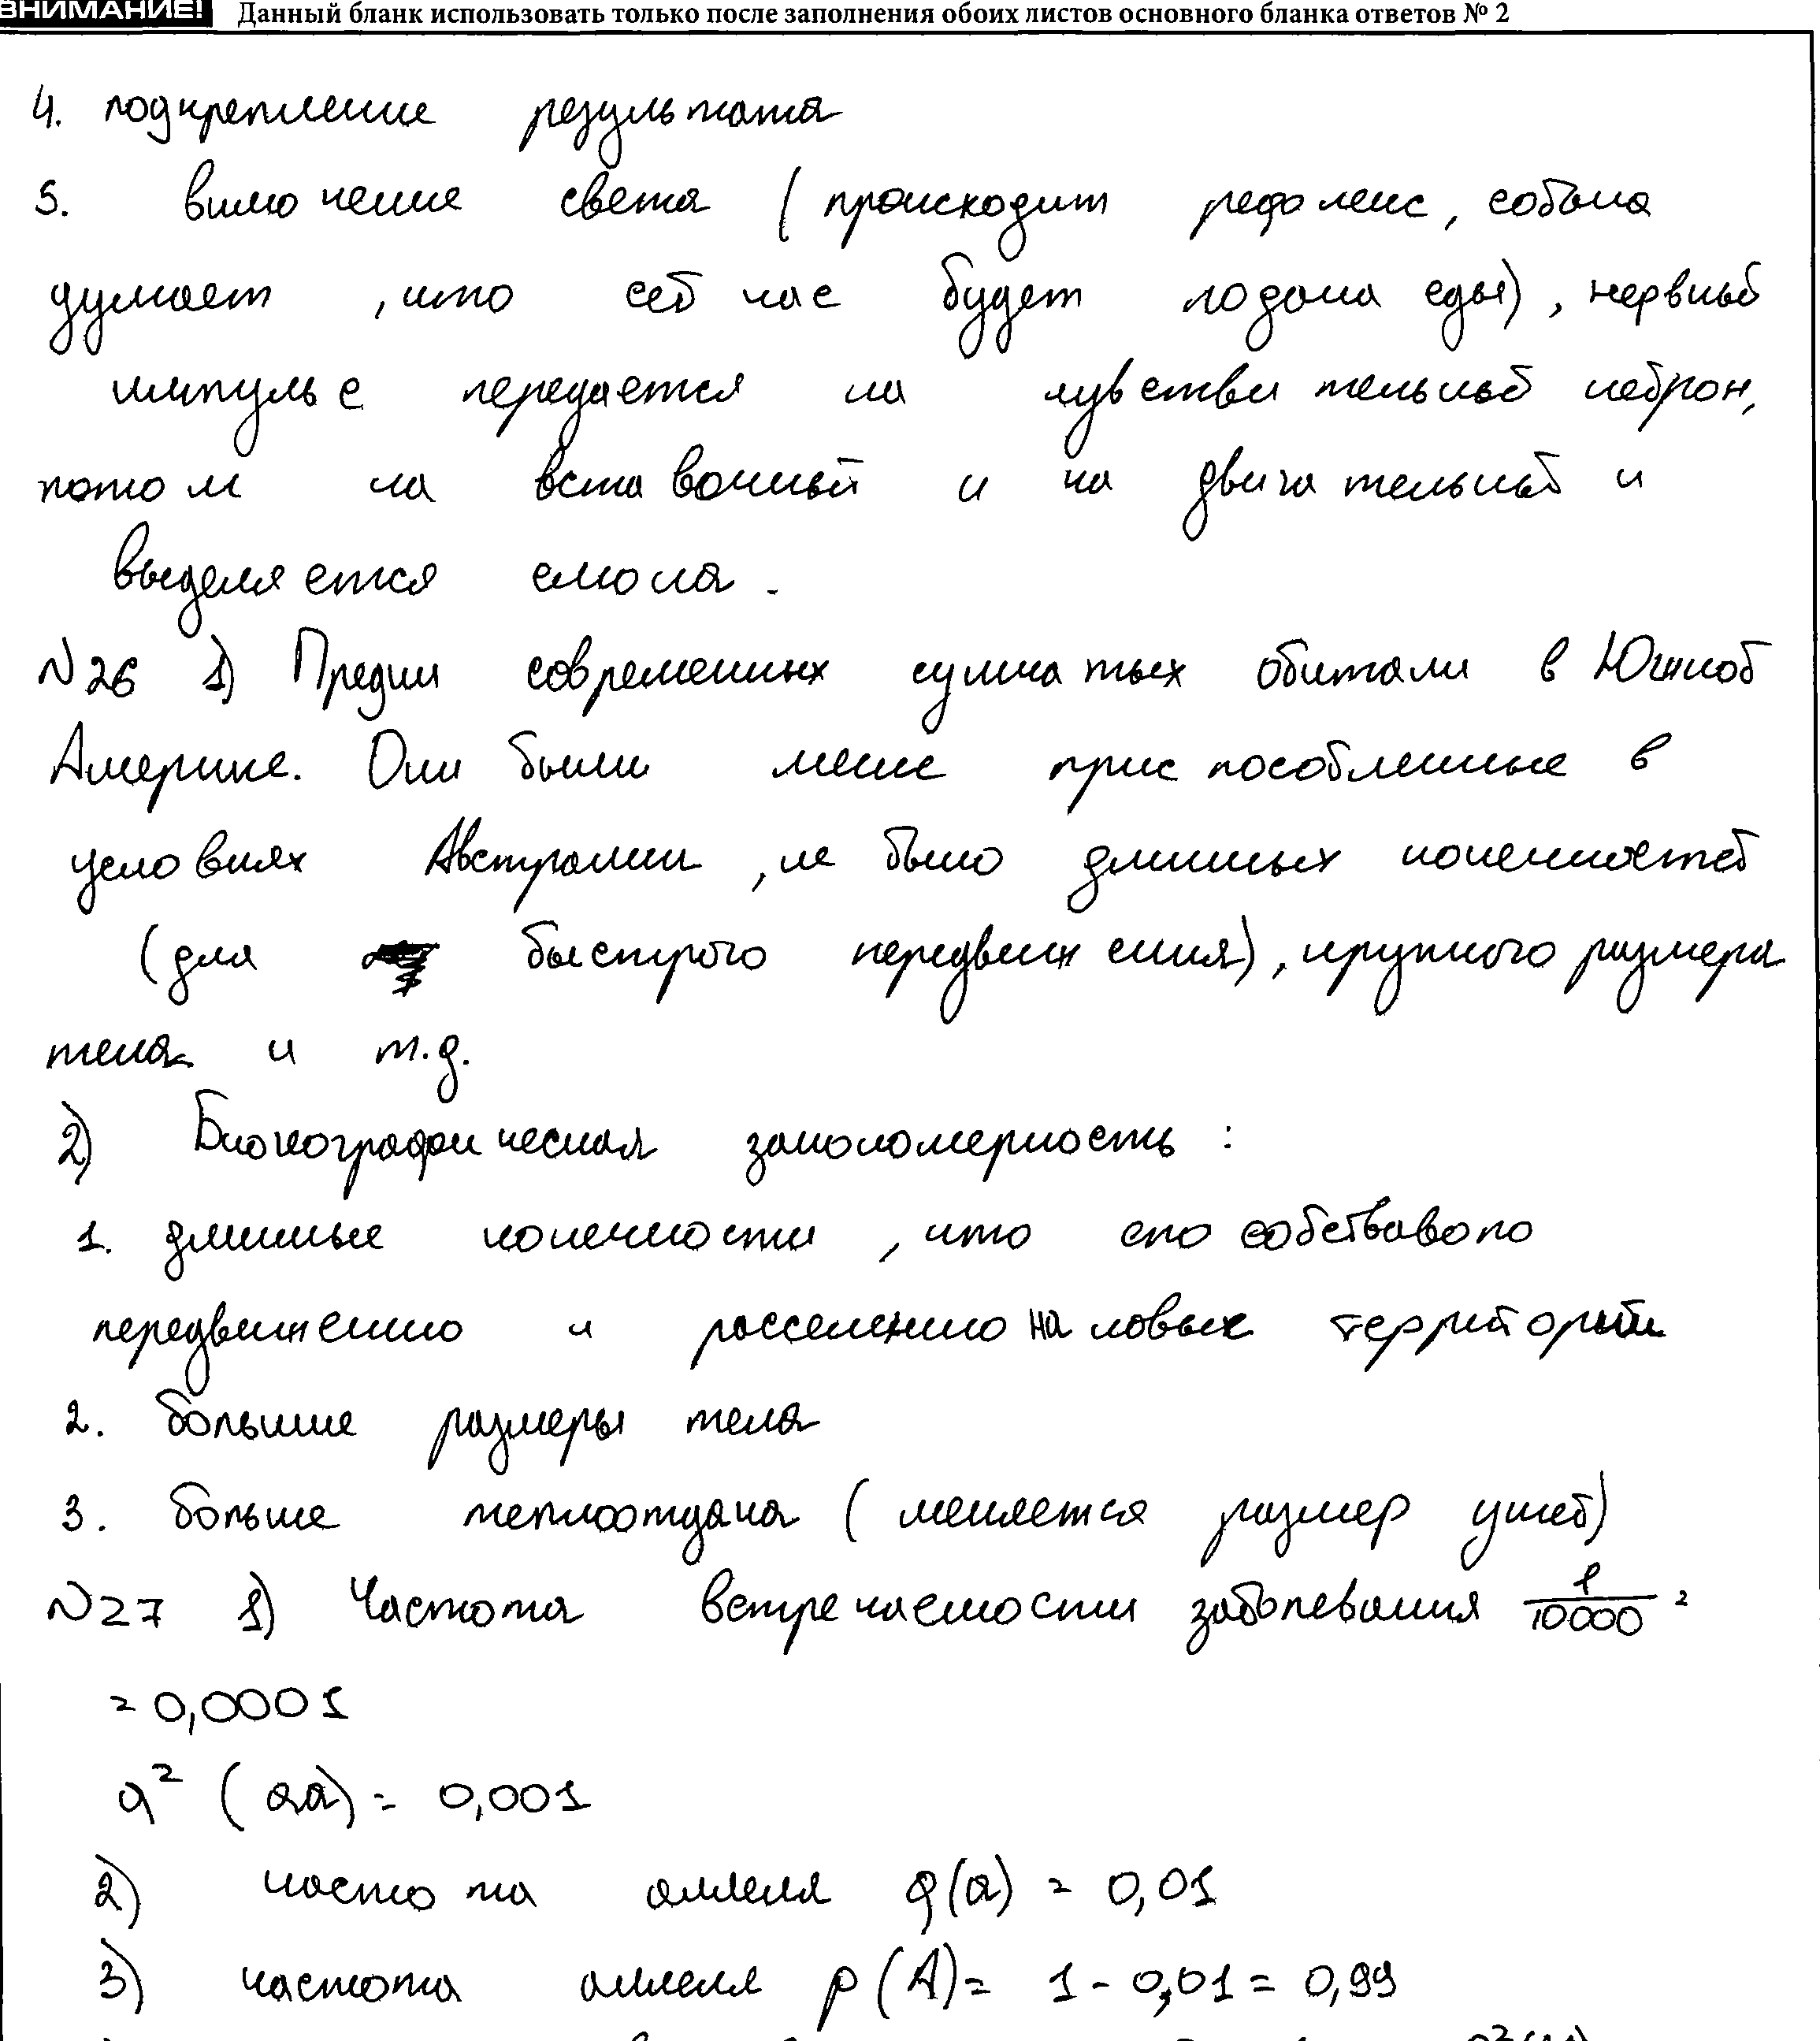 ВНИМАНИЕ! Данный бланк использовать только после заполнения обоих листов основного бланка ответов № 2
4. подкрепление результата
5. включение света (происходит рефлекс, собака
думает, что сейчас будет подана еда), нервный
импульс передается на чувствительный нейрон,
потом на вставочный и на двигательный и
выделяется слюна.
№26 1) Предки современных сумчатых обитали в Южной
Америке. Они были менее приспособленные в
условиях Австралии, не было длинных конечностей
(для быстрого передвижения), крупного размера
тела и т.д.
2) Биогеографическая закономерность:
1. длинные конечности, что способстваволо
передвижению и расселению на новые территории
2. большие размеры тела
3. больше теплоотдача (меняется размер ушей)
№27 1) Частота встречаемости заболевания 1/10000 =
= 0,0001
q² (aa) = 0,001
2) частота аллеля q(a) = 0,01
3) частота аллеля p(A) = 1 - 0,01 = 0,99